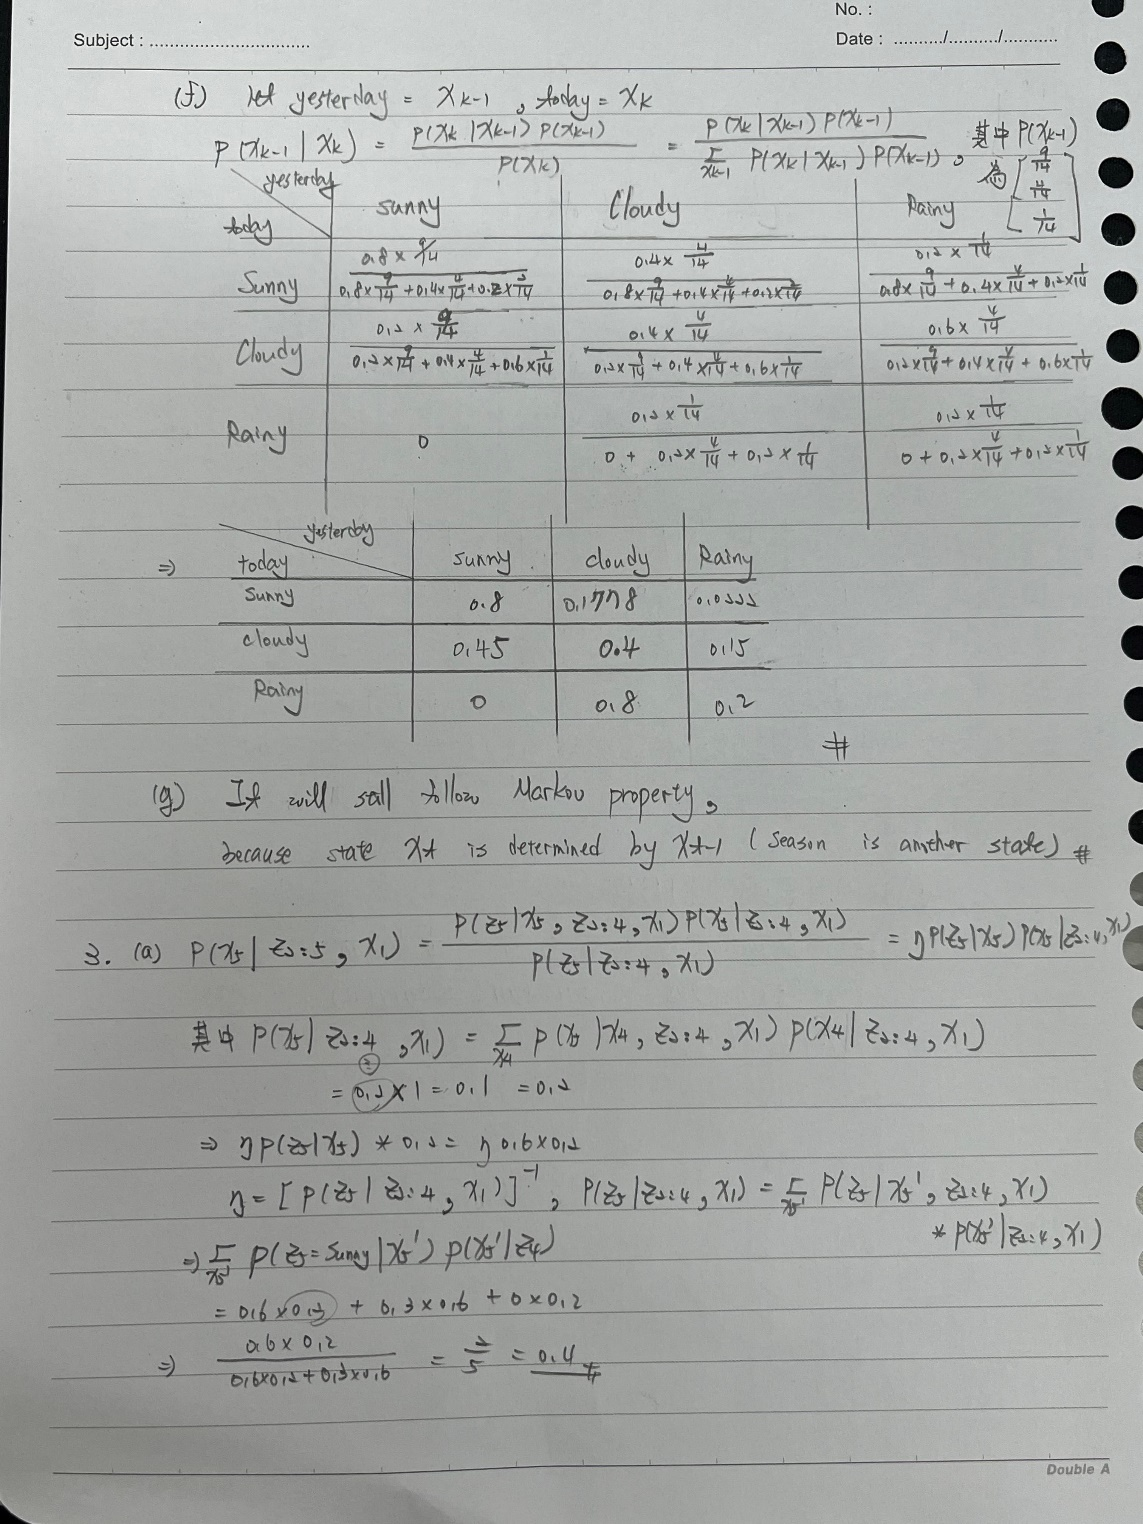 No. :
Subject : ................................
Date : ........../........../...........
(f) let yesterday = Xk-1 , today = Xk
P(Xk-1 | Xk) = P(Xk | Xk-1) P(Xk-1) / P(Xk) = P(Xk | Xk-1) P(Xk-1) / Σxk-1 P(Xk | Xk-1) P(Xk-1) 。 其中 P(Xk-1) 為 [9/14 4/14 1/14]
yesterday sunny Cloudy Rainy
today
Sunny 0.8 × 9/14 / 0.8×9/14 + 0.4×4/14 + 0.2×1/14 0.4× 4/14 / 0.8×9/14 + 0.4×4/14 + 0.2×1/14 0.2 × 1/14 / 0.8× 9/14 + 0.4×4/14 + 0.2×1/14
Cloudy 0.2 × 9/14 / 0.2×9/14 + 0.4×4/14 + 0.6×1/14 0.4 × 4/14 / 0.2×9/14 + 0.4×4/14 + 0.6×1/14 0.6× 4/14 / 0.2×9/14 + 0.4×4/14 + 0.6×1/14
Rainy 0 0.2 × 1/14 / 0 + 0.2×4/14 + 0.2×1/14 0.2 × 1/14 / 0 + 0.2×4/14 + 0.2×1/14
yesterday
⇒ today sunny cloudy Rainy
Sunny 0.8 0.1778 0.0222
cloudy 0.45 0.4 0.15
Rainy 0 0.8 0.2
#
(g) It will still follow Markov property,
because state Xt is determined by Xt-1 (Season is another state) #
3. (a) P(X5 | Z2:5 , X1) = P(Z5 | X5 , Z2:4, X1) P(X5 | Z2:4 , X1) / P(Z5 | Z2:4 , X1) = η P(Z5 | X5) P(X5 | Z2:4, X1)
其中 P(X5 | Z2:4 , X1) = Σx4 P(X5 | X4, Z2:4 , X1) P(X4 | Z2:4 , X1)
= 0.2 × 1 = 0.1 = 0.2
⇒ η P(Z5 | X5) * 0.2 = η 0.6 × 0.2
η = [P(Z5 | Z2:4 , X1)]⁻¹ , P(Z5 | Z2:4 , X1) = Σx5' P(Z5 | X5' , Z2:4 , X1)
* P(X5' | Z2:4 , X1)
⇒ Σx5' P(Z5 = Sunny | X5') P(X5' | Z4)
= 0.6 × 0.2 + 0.3 × 0.6 + 0 × 0.2
⇒ 0.6 × 0.2 / 0.6×0.2 + 0.3×0.6 = 2/5 = 0.4 #
Double A